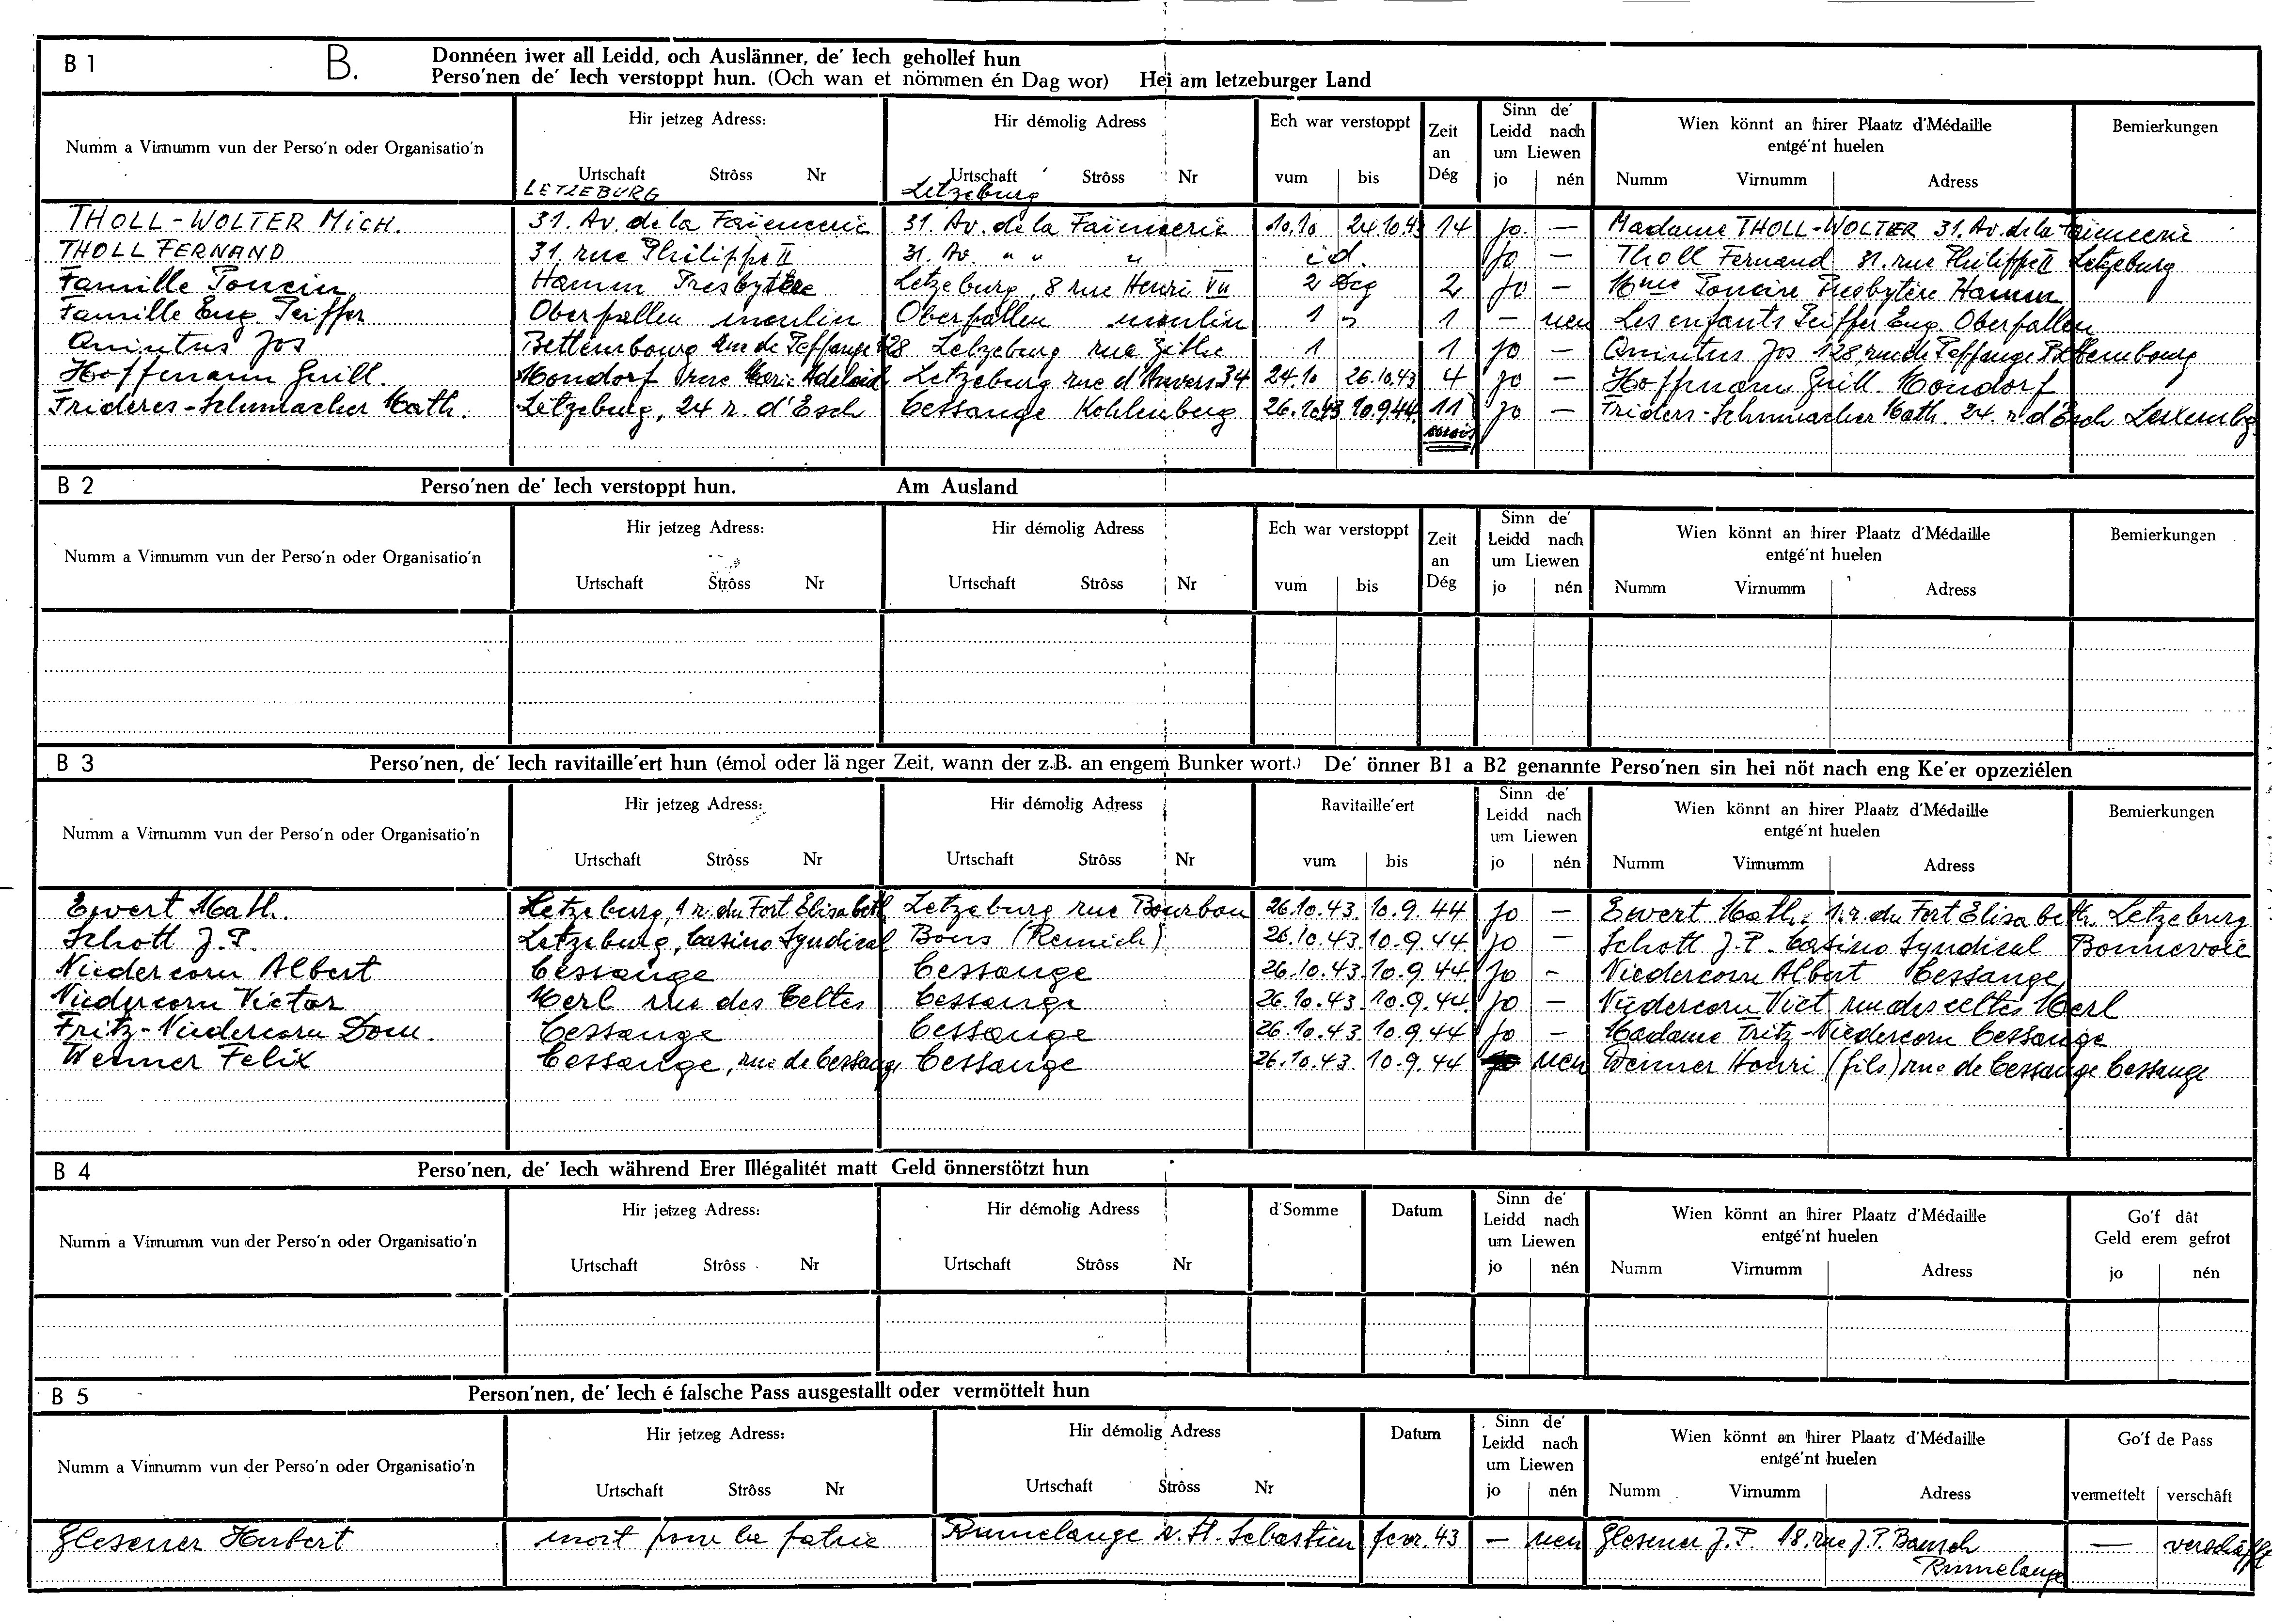 B 1 B. Donnéen iwer all Leidd, och Auslänner, de' Iech gehollef hun
Perso'nen de' Iech verstoppt hun. (Och wan et nömmen én Dag wor) Hei am letzeburger Land
Numm a Virnumm vun der Perso'n oder Organisatio'n Hir jetzeg Adress: Urtschaft Strôss Nr Hir démolig Adress Urtschaft Strôss Nr Ech war verstoppt vum bis Zeit an Dég Sinn de' Leidd nach um Liewen jo nén Wien könnt an hirer Plaatz d'Médaille entgé'nt huelen Numm Virnumm Adress Bemierkungen
LETZEBURG Letzeburg
THOLL-WOLTER MICH. 31. Av. de la Faïencerie 31. Av. de la Faïencerie 10.10 24.10.43 14 jo — Madame THOLL-WOLTER 31. Av. de la Faïencerie
THOLL FERNAND 31. rue Philippe II 31. Av. " " " id. jo — Tholl Fernand 31. rue Philippe II Letzeburg
Famille Poncin Hamm Presbytère Letzeburg, 8 rue Henri VII 2 Deg 2 jo — Mme Poncin Presbytère Hamm
Famille Eug. Peiffer Oberpallen moulin Oberpallen moulin 1 1 — nen Les enfants Peiffer Eug. Oberpallen
Quintus Jos Bettembourg rue de Peppange 128 Letzeburg rue Zithe 1 1 jo — Quintus Jos 128, rue de Peppange Bettembourg
Hoffmann Guill. Mondorf rue Mar. Adelaid Letzeburg rue d'Anvers 34 24.10 26.10.43 4 jo — Hoffmann Guill. Mondorf
Frideres-Schumacher Math. Letzeburg, 24 r. d'Esch Cessange Kohlenberg 26.10.43 10.9.44 11 mois jo — Friders-Schumacher Math. 24. r. d'Esch Luxembg
B 2 Perso'nen de' Iech verstoppt hun. Am Ausland
Numm a Virnumm vun der Perso'n oder Organisatio'n Hir jetzeg Adress: Urtschaft Strôss Nr Hir démolig Adress Urtschaft Strôss Nr Ech war verstoppt vum bis Zeit an Dég Sinn de' Leidd nach um Liewen jo nén Wien könnt an hirer Plaatz d'Médaille entgé'nt huelen Numm Virnumm Adress Bemierkungen
B 3 Perso'nen, de' Iech ravitaille'ert hun (émol oder länger Zeit, wann der z.B. an engem Bunker wort.) De' önner B1 a B2 genannte Perso'nen sin hei nöt nach eng Ke'er opzeziélen
Numm a Virnumm vun der Perso'n oder Organisatio'n Hir jetzeg Adress: Urtschaft Strôss Nr Hir démolig Adress Urtschaft Strôss Nr Ravitaille'ert vum bis Sinn de' Leidd nach um Liewen jo nén Wien könnt an hirer Plaatz d'Médaille entgé'nt huelen Numm Virnumm Adress Bemierkungen
Ewert Math. Letzeburg, 1 r. du Fort Elisabeth Letzeburg rue Bourbon 26.10.43. 10.9.44 jo — Ewert Math. 1. r. du Fort Elisabeth. Letzeburg
Schott J.P. Letzeburg, Casino Syndical Bous (Remich) 26.10.43 10.9.44. jo — Schott J.P. Casino Syndical Bonnevoie
Niedercorn Albert Cessange Cessange 26.10.43. 10.9.44. jo — Niedercorn Albert Cessange
Niedercorn Victor Merl rue des Celtes Cessange 26.10.43. 10.9.44. jo — Niedercorn Vict rue des celtes Merl
Fritz-Niedercorn Dom. Cessange Cessange 26.10.43. 10.9.44 jo — Madame Fritz-Niedercorn Cessange
Weimer Felix Cessange, rue de Cessange Cessange 26.10.43. 10.9.44 nen Weimer Henri (fils) rue de Cessange Cessange
B 4 Perso'nen, de' Iech während Erer Illégalitét matt Geld önnerstötzt hun
Numm a Virnumm vun der Perso'n oder Organisatio'n Hir jetzeg Adress: Urtschaft Strôss Nr Hir démolig Adress Urtschaft Strôss Nr d'Somme Datum Sinn de' Leidd nach um Liewen jo nén Wien könnt an hirer Plaatz d'Médaille entgé'nt huelen Numm Virnumm Adress Go'f dât Geld erem gefrot jo nén
B 5 Person'nen, de' Iech é falsche Pass ausgestallt oder vermöttelt hun
Numm a Virnumm vun der Perso'n oder Organisatio'n Hir jetzeg Adress: Urtschaft Strôss Nr Hir démolig Adress Urtschaft Strôss Nr Datum Sinn de' Leidd nach um Liewen jo nén Wien könnt an hirer Plaatz d'Médaille entgé'nt huelen Numm Virnumm Adress Go'f de Pass vermettelt verschâft
Glesener Hubert mort pour la patrie Rumelange r. St. Sebastien fevr. 43 — nen Glesener J.P. 18, rue J.P. Bausch — verschäfft
Rumelange